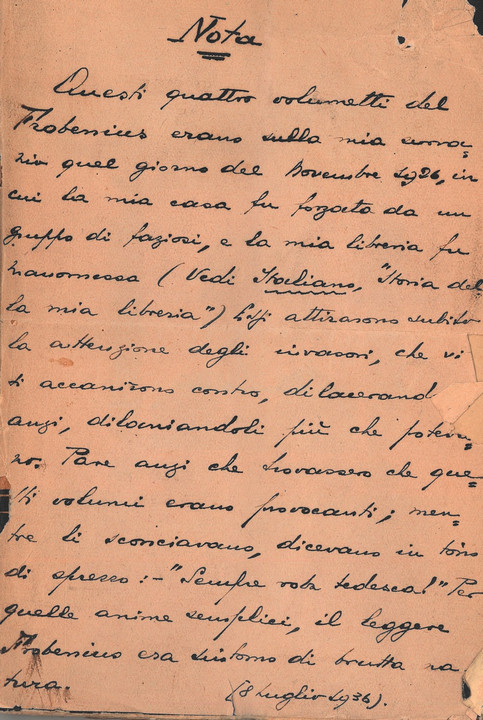 Nota
Questi quattro volumetti del
Frobenius erano sulla mia scrva=
nia quel giorno del Novembre 1926, in
cui la mia casa fu forzata da un
gruppo di faziosi, e la mia libreria fu
manomessa (Vedi Italiano, "Storia del
la mia libreria") Essi attirarono subito
la attenzione degli invasori, che vi
si accanirono contro, dilacerand
anzi, dilaniandoli più che poteva=
no. Pare anzi che trovassero che que=
sti volumi erano provocanti; men=
tre li sconciavano, dicevano in tono
di sprezzo: - "Sempre roba tedesca!" Per
quelle anime semplici, il leggere
Frobenius era sintomo di brutta na
tura.
(8 Luglio 1936).